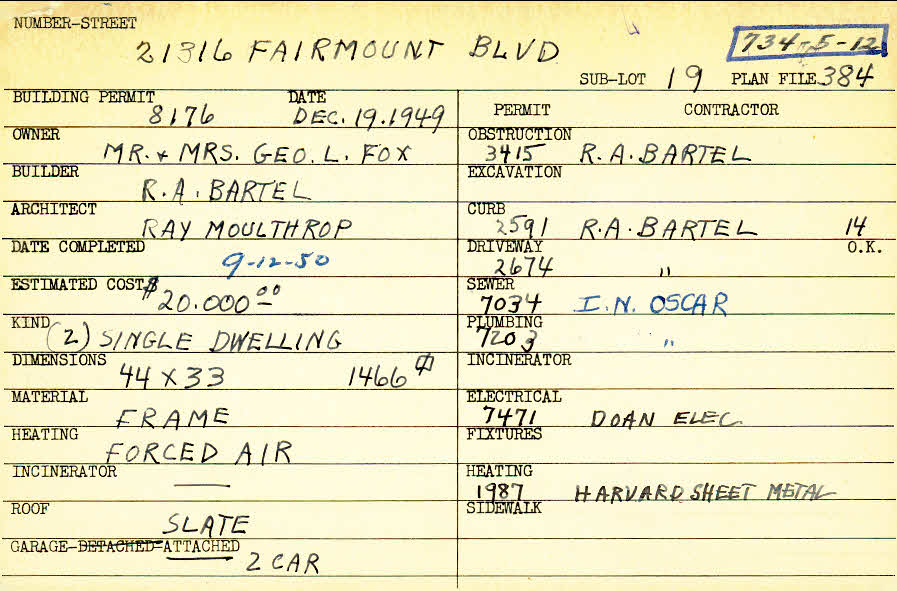 NUMBER-STREET
21316 FAIRMOUNT BLVD
734-5-12
SUB-LOT 19 PLAN FILE 384
BUILDING PERMIT DATE
8176 DEC. 19. 1949
OWNER
MR. & MRS. GEO. L. FOX
BUILDER
R. A. BARTEL
ARCHITECT
RAY MOULTHROP
DATE COMPLETED
9-12-50
ESTIMATED COST $
20.000 00
KIND
(2) SINGLE DWELLING
DIMENSIONS
44 X 33 1466
MATERIAL
FRAME
HEATING
FORCED AIR
INCINERATOR
—
ROOF
SLATE
GARAGE-DETACHED-ATTACHED
2 CAR
PERMIT CONTRACTOR
OBSTRUCTION
3415 R. A. BARTEL
EXCAVATION
CURB
2591 R. A. BARTEL 14
DRIVEWAY O.K.
2674 "
SEWER
7034 I. N. OSCAR
PLUMBING
7203 "
INCINERATOR
ELECTRICAL
7471 DOAN ELEC.
FIXTURES
HEATING
1987 HARVARD SHEET METAL
SIDEWALK